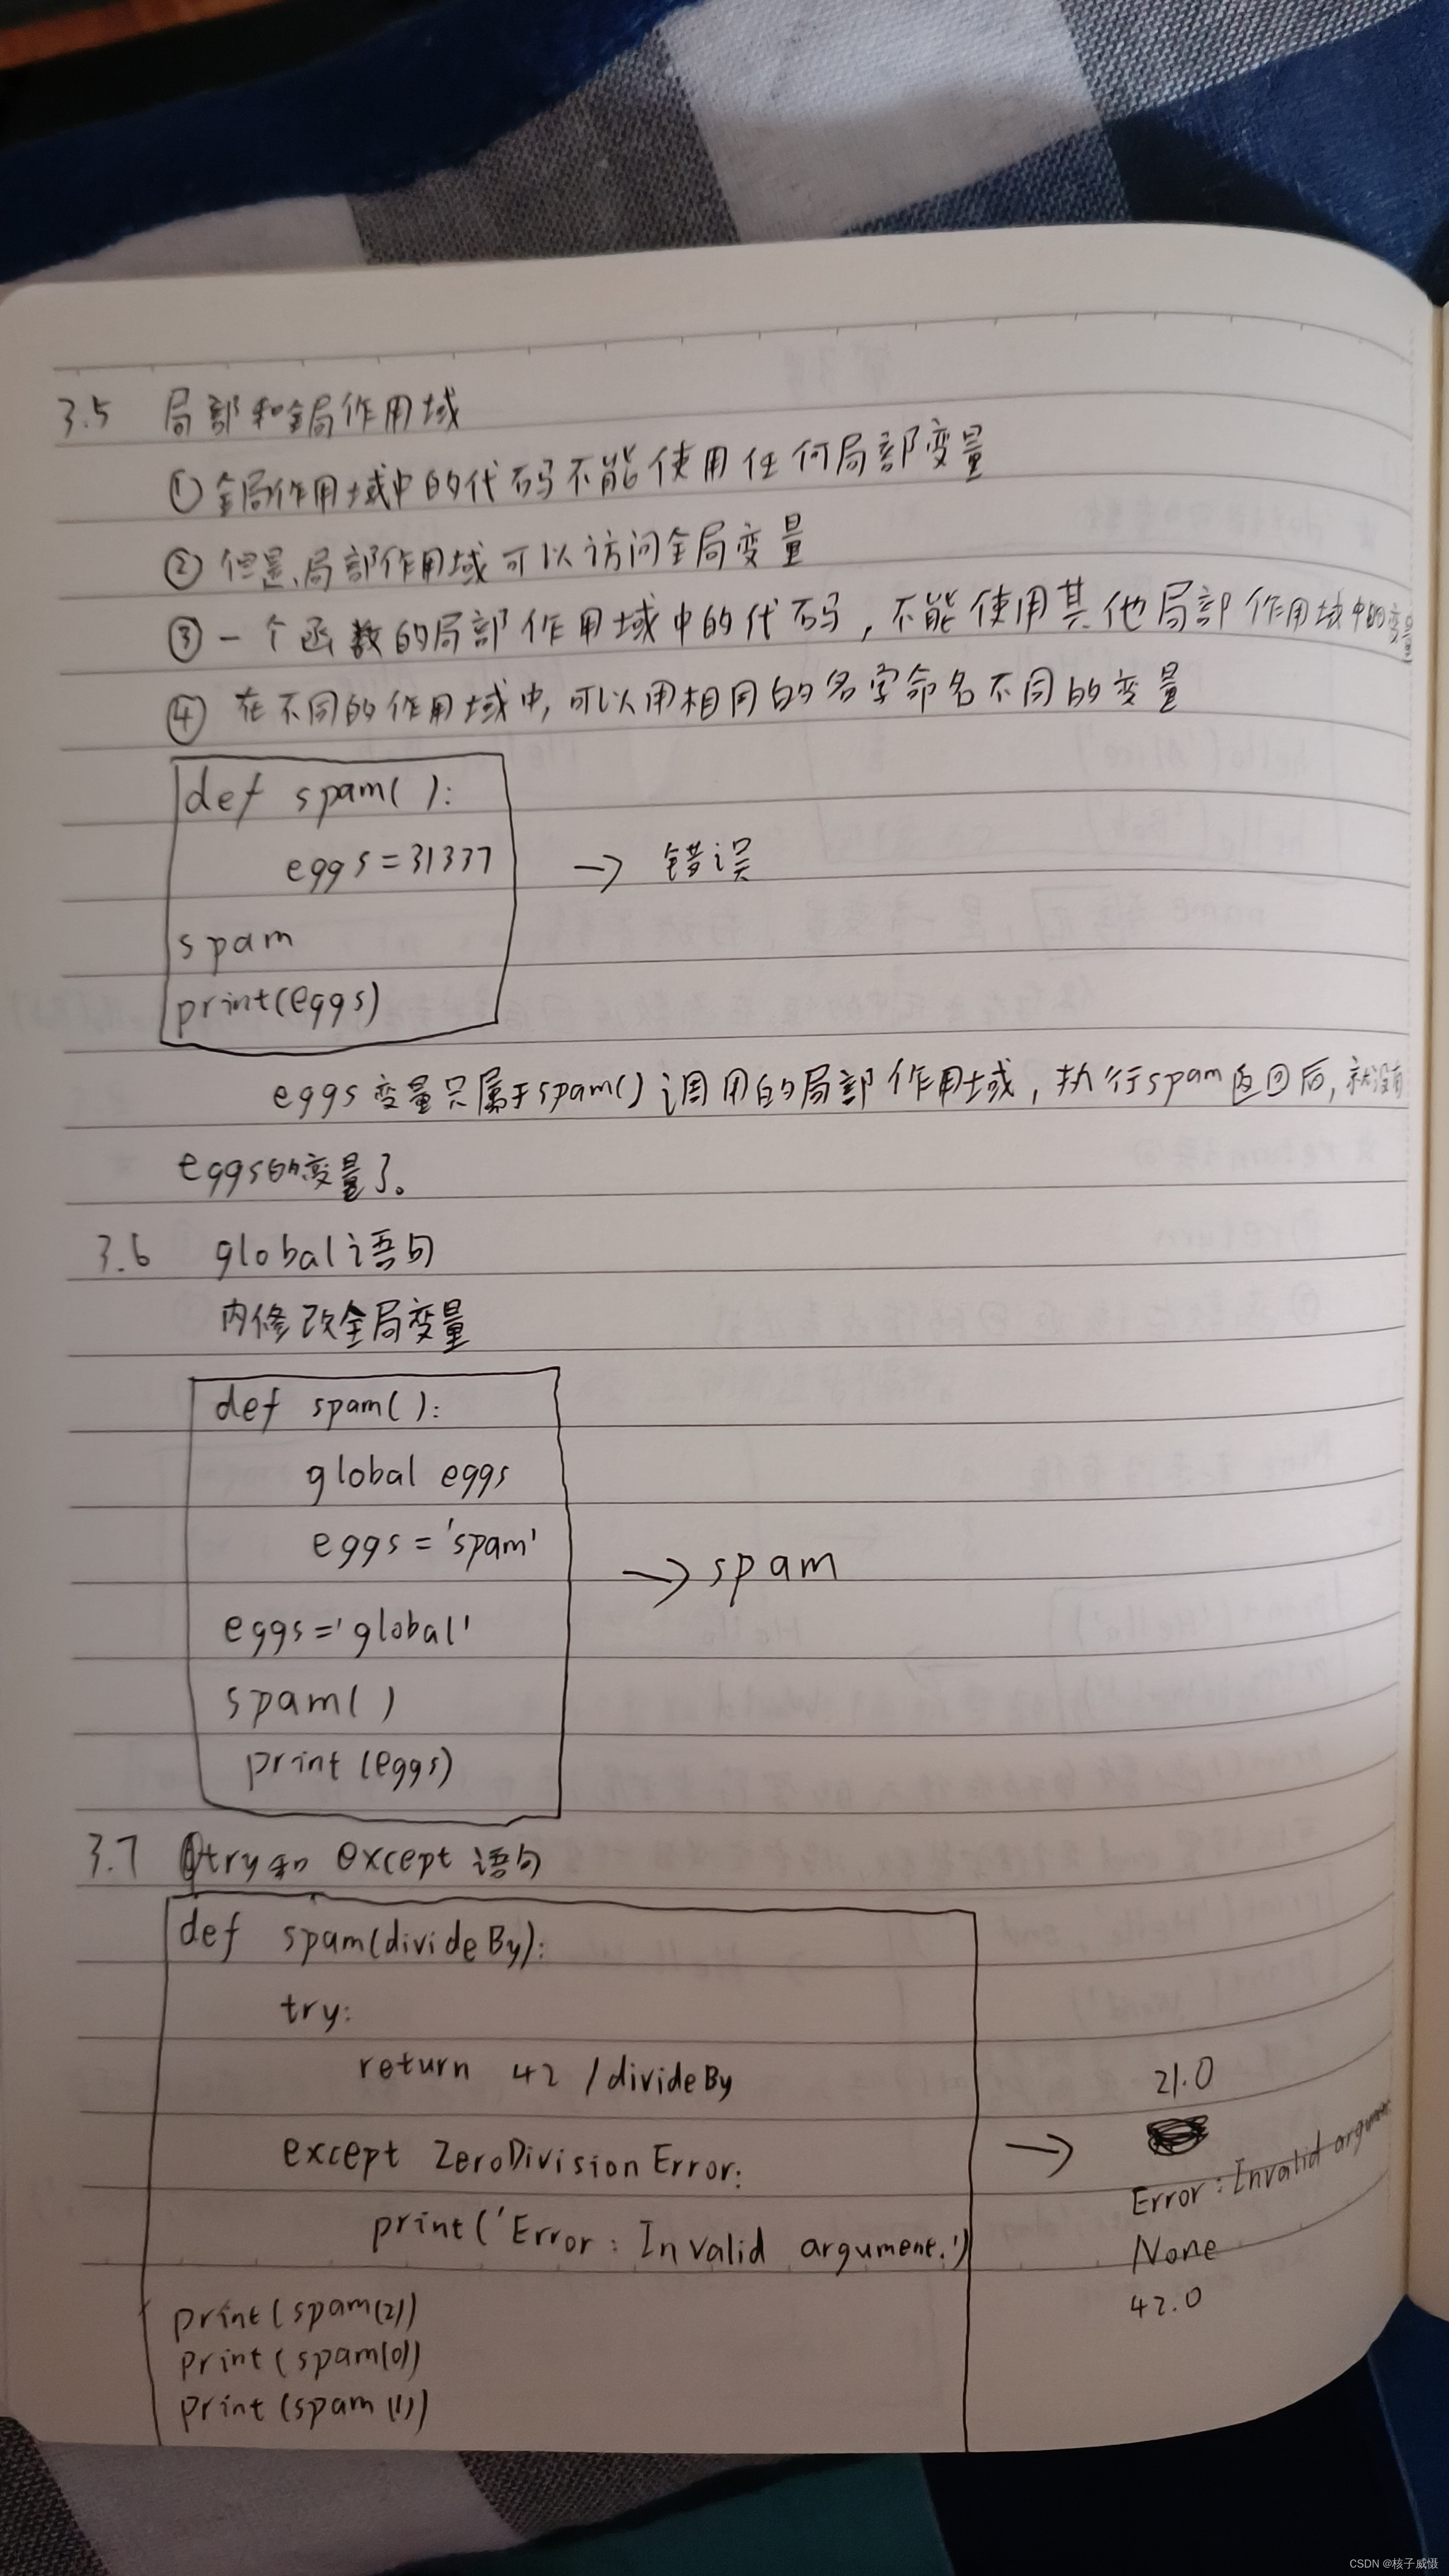 3.5 局部和全局作用域
①全局作用域中的代码不能使用任何局部变量
②但是、局部作用域可以访问全局变量
③一个函数的局部作用域中的代码,不能使用其他局部作用域中的变量
④在不同的作用域中,可以用相同的名字命名不同的变量
def spam():
eggs=31337 → 错误
spam
print(eggs)
eggs变量只属于spam()调用的局部作用域,执行spam返回后,就没有
eggs的变量了。
3.6 global语句
内修改全局变量
def spam():
global eggs
eggs='spam'
→ spam
eggs='global'
spam()
print(eggs)
3.7 try和except语句
def spam(divideBy):
try:
return 42 /divideBy
21.0
except ZeroDivisionError:
→
Error:Invalid argument.
print('Error: Invalid argument.')
None
42.0
print(spam(2))
print(spam(0))
print(spam(1))
CSDN @核子威慑